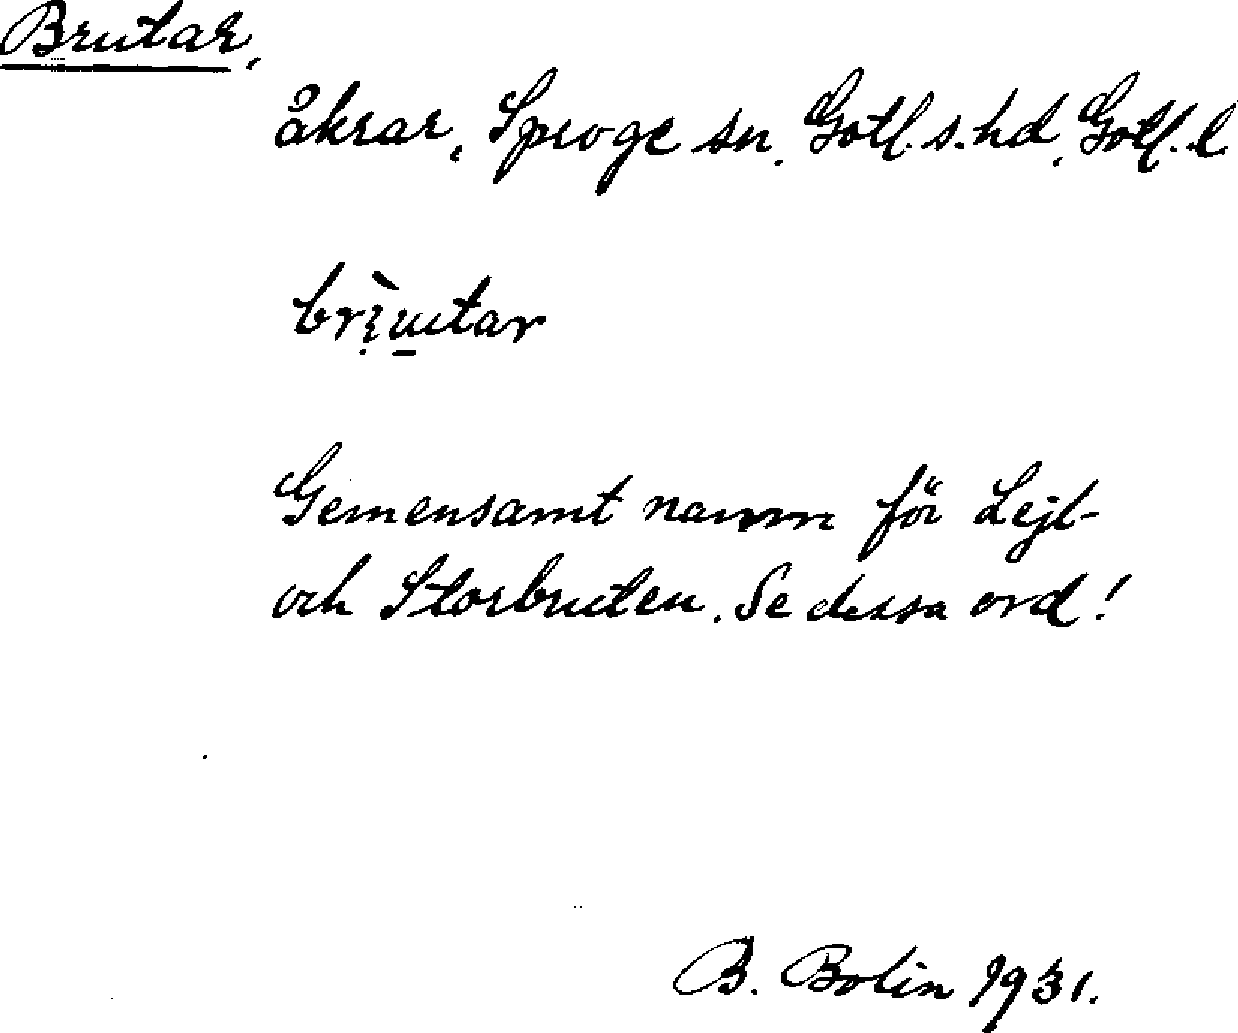 Brutar,
åkrar, Sproge sn. Gotl. s. hd, Gotl. l
Gemensamt namn för Lejl-
och Storbruten. Se dessa ord!
B. Bolin 1931.